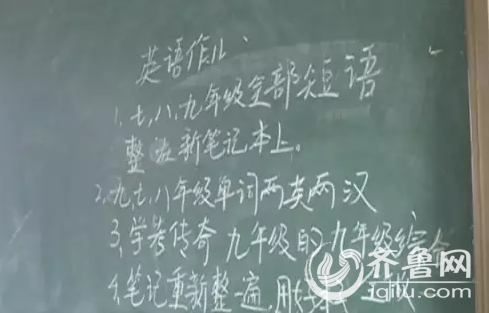 英语作业:
1.七,八,九年级全部短语
整在新笔记本上。
2.九,七,八年级单词两英两汉
3.学考传奇 九年级的九年级综合
4.笔记重新整一遍,用
齐鲁网